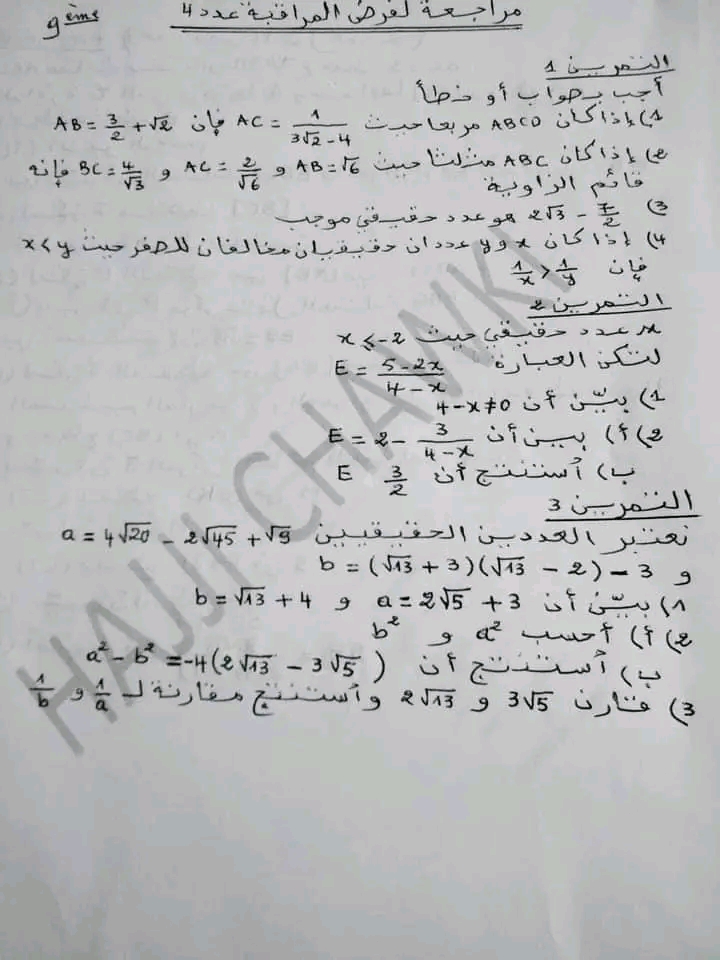 9ème
مراجعة لفرض المراقبة عدد 4
التمرين 1
أجب بصواب أو خطأ
1) إذا كان ABCD مربعا حيث AC = 1/(3√2-4) فإن AB = 3/2 + √2
2) إذا كان ABC مثلثا حيث AB = √6 و AC = 2/√6 و BC = 4/√3 فإنه
قائم الزاوية
3) 2√3 - 7/2 هو عدد حقيقي موجب
4) إذا كان x و y عددان حقيقيان مخالفان للصفر حيث x < y
فإن 1/x > 1/y
التمرين 2
x عدد حقيقي حيث x ≤ -2
لتكن العبارة E = (5-2x)/(4-x)
1) بيّن أن 4-x≠0
2) أ) بين أن E = 2 - 3/(4-x)
ب) أستنتج أن 3/2 E
التمرين 3
نعتبر العددين الحقيقيين a = 4√20 - 2√45 + √9
و b = (√13 + 3)(√13 - 2) - 3
1) بيّن أن a = 2√5 + 3 و b = √13 + 4
2) أ) أحسب a² و b²
ب) أستنتج أن a² - b² = -4(2√13 - 3√5)
3) قارن 3√5 و 2√13 وأستنتج مقارنة لـ 1/a و 1/b
HAJJI CHAWKI